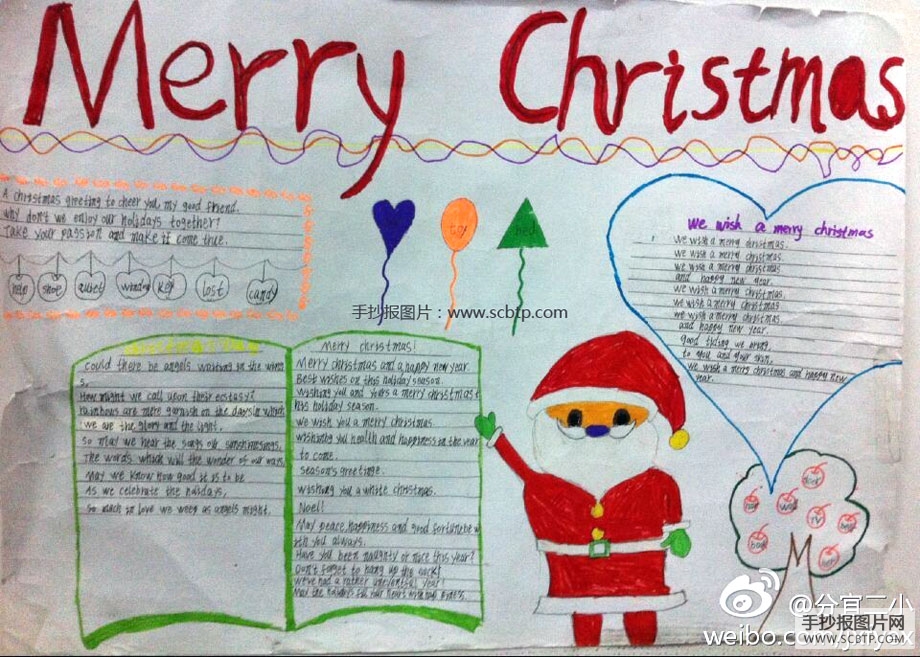 Merry Christmas
A christmas greeting to cheer you, my good friend.
why don't we enjoy our holidays together?
Take your passion and make it come true.
help shoe quiet winding key lost candy
toy bed
手抄报图片：www.scbtp.com
we wish a merry christmas
we wish a merry christmas.
we wish a merry christmas.
we wish a merry christmas
and happy new year.
we wish a merry christmas.
we wish a merry christmas.
we wish a merry christmas.
and happy new year.
good tiding we bring
to you and your
we wish a merry christmas and happy new
year.
could there be angels waiting in the
How might we call upon their ecstasy?
rainbows are mere garish on the days in which
we are the glory and the light.
so may we hear the songs our
The words which will the wonder of our ways
May we know how good it is to be
As we celebrate the holidays,
so much in love we weep as angels might.
Merry christmas!
Merry christmas and a happy new year.
Best wishes on this holiday season.
wishing you and yours a merry christmas t
his holiday season.
we wish you a merry christmas.
wishing you health and happiness in the year
to come.
season's greetings.
wishing you a white christmas.
Noel!
May peace, happiness and good fortune be w
ith you always.
Have you been naughty or nice this year?
Don't forget to hang up the sock!
we've had a rather uneventful year!
May the holidays fill your hearts with
TV
book
@分宜二小
weibo.com/
手抄报图片网
www.SCBTP.COM